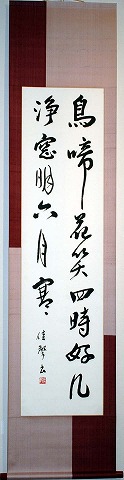 鳥啼花笑四時好几
浄窓明六月寒
佳聲書